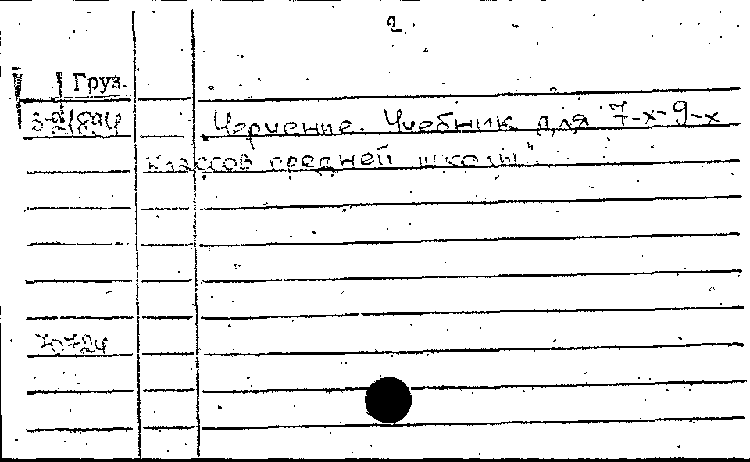 2.
Груз.
Черчение. Учебник для 7-х-9-х
классов средней школы".